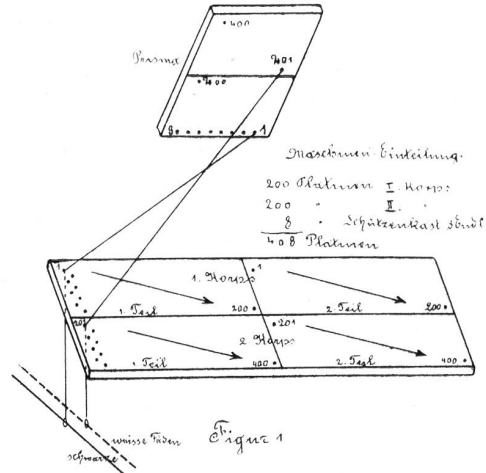 400
Prisma
201
400
8 1
Maschinen-Einteilung.
200 Platinen I. Korps
200 " II. "
8 " Schützenkast
408 Platinen
1
1. Korps
1
1. Teil
200
2. Teil
200
201
201
2. Korps
1. Teil
400
2. Teil
400
weisse Fäden
schwarze
Figur 1